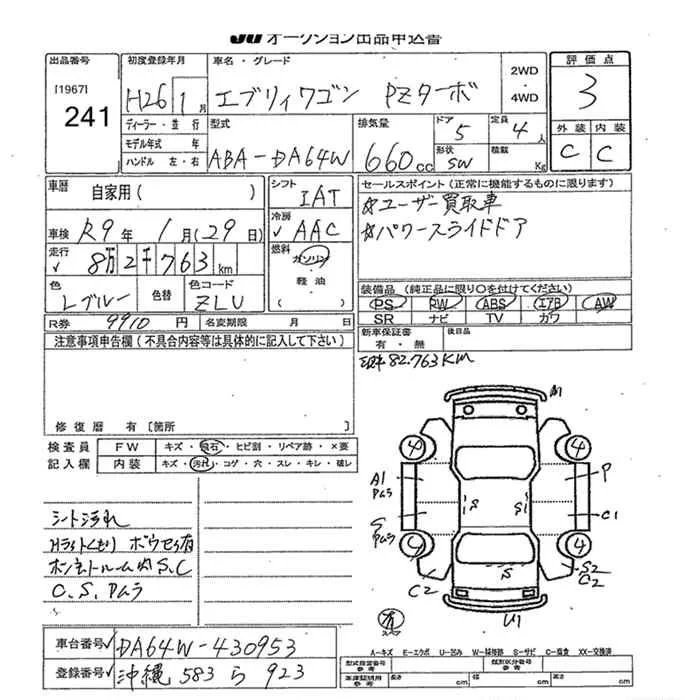 JU オークション出品申込書
出品番号 初度登録年月 車名・グレード 2WD・4WD 評価点
[1967] 241 H26 1月 エブリィワゴン PZターボ 3
外装 内装
C C
ディーラー・並行 型式 排気量 ドア 5 定員 4人
モデル年式 年
ハンドル 左・右 ABA-DA64W 660cc 形状 SW 積載 Kg
車暦 自家用( ) シフト IAT セールスポイント(正常に機能するものに限ります)
車検 R9年 1月(29日) 冷房 AAC ☆ユーザー買取車
☆パワースライドドア
走行 8万2千763km 燃料 ガソリン・軽油
色 Lブルー 色替 色コード ZLU 装備品(純正品に限り○を付けてください)
PS PW ABS エアB AW
SR ナビ TV カワ
R券 9910円 名変期限 月 日 新車保証書 有・無 後日品
注意事項申告欄(不具合内容等は具体的に記入して下さい)
82.763KM
修復暦 有[箇所
検査員 FW キズ・飛石・ヒビ割・リペア跡・×要
記入欄 内装 キズ・汚れ・コゲ・穴・スレ・キレ・破レ
シート汚れ
Hライトくもり ボウセイ有
ボンネットルーム内S.C
C.S.Pムラ
A1
Pムラ
S
Pムラ
C2
4 4
4 4
S S1
S
P
C1
S2
C2
U1
有
スペア
車台番号 DA64W-430953
登録番号 沖縄 583 ら 923
A-キズ E-エクボ U-凹み W-補修跡 S-サビ C-腐食 XX-交換済
型式指定番号 参考 類別区分番号 参考
車庫証明用 参考 長さ cm 幅 cm 高さ cm